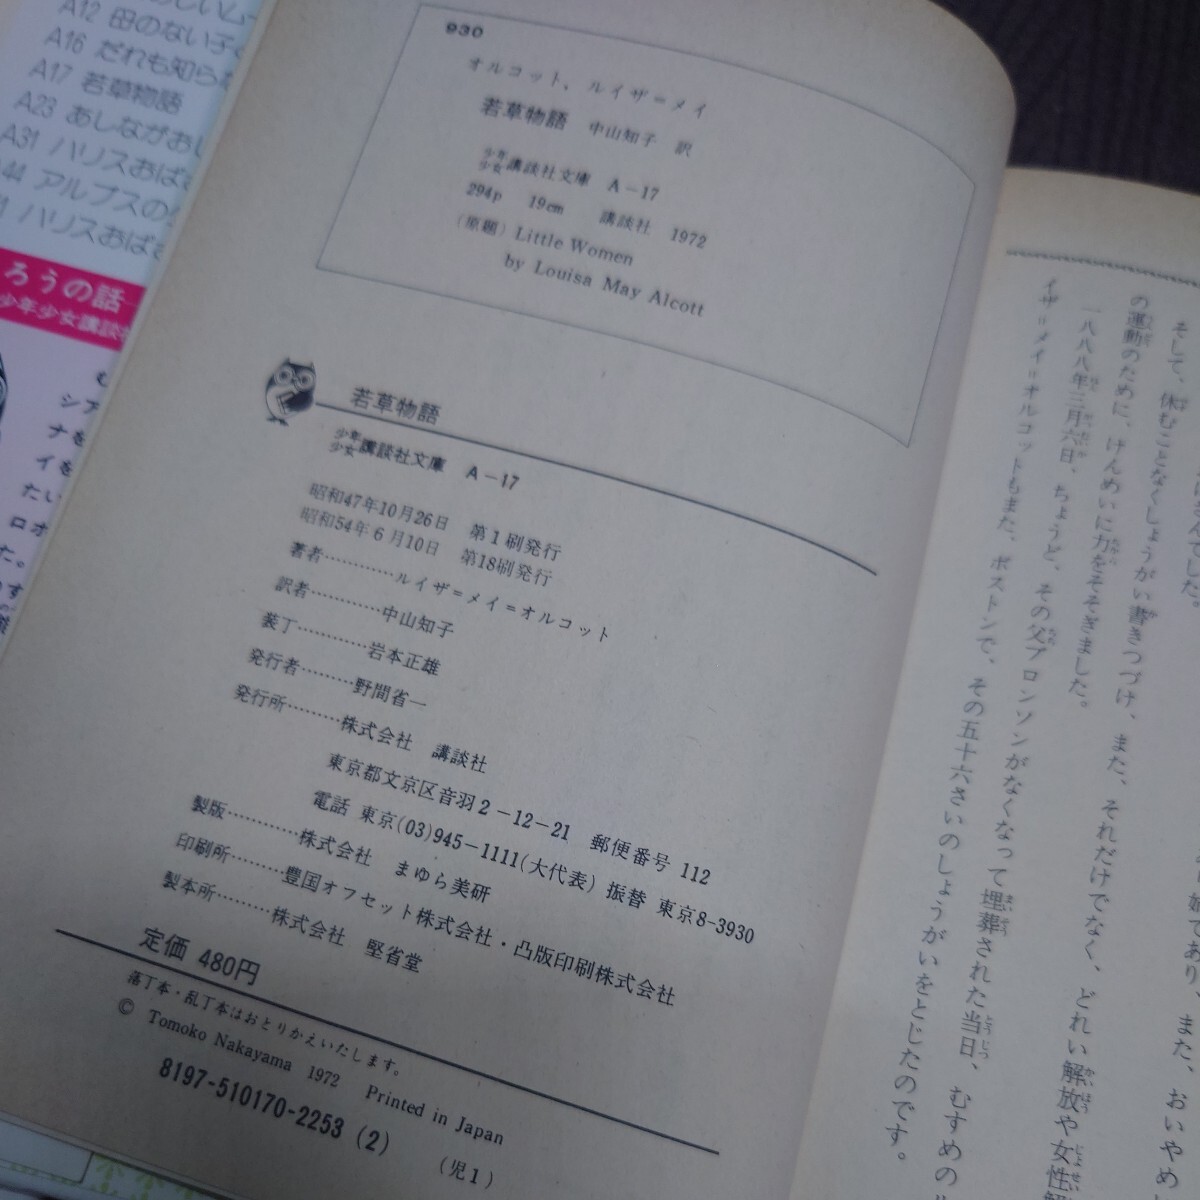 A12 母のない子
A16 だれも知ら
A17 若草物語
A23 あしながおじ
A31 ハリスおばさ
44 アルプスの
1 ハリスおばさ
ろうの話
少年少女講談社
930
オルコット，ルイザ＝メイ
若草物語 中山知子 訳
少年少女講談社文庫 A－17
294p 19cm 講談社 1972
（原題）Little Women
by Louisa May Alcott
若草物語
少年少女講談社文庫 A－17
昭和47年10月26日 第1刷発行
昭和54年6月10日 第18刷発行
著者…………ルイザ＝メイ＝オルコット
訳者…………中山知子
装丁…………岩本正雄
発行者………野間省一
発行所………株式会社 講談社
東京都文京区音羽2－12－21 郵便番号 112
電話 東京(03)945－1111(大代表) 振替 東京8-3930
製版…………株式会社 まゆら美研
印刷所………豊国オフセット株式会社・凸版印刷株式会社
製本所………株式会社 堅省堂
定価 480円
落丁本・乱丁本はおとりかえいたします。
© Tomoko Nakayama 1972 Printed in Japan
8197-510170-2253 (2)
（児1）
そして、休むことなくしょうがい書きつづけ、また、それだけでなく、どれい解放や女性解
の運動のために、けんめいに力をそそぎました。
一八八八年三月六日、ちょうど、その父ブロンソンがなくなって埋葬された当日、むすめのル
イザ＝メイ＝オルコットもまた、ボストンで、その五十六さいのしょうがいをとじたのです。